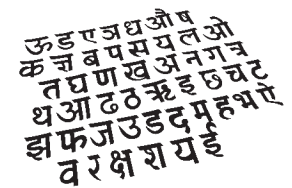 ऊ ड ए ञ ध औ ष
क च्र ब प स य ल ओ
त घ ण ख अ न ग त्र
थ आ ढ ठ ऋ इ छ च ट
झ फ ज उ ड द म ह भ ऐ
व र क्ष श य ई